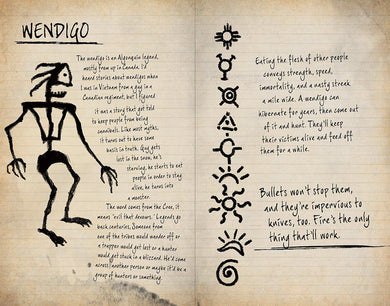 WENDIGO
The wendigo is an Algonquin legend,
mostly from up in Canada. I'd
heard stories about wendigos when
I was in Vietnam from a guy in a
Canadian regiment, but I figured
it was a story that got told
to keep people from being
cannibals. Like most myths,
it turns out to have some
basis in truth. Guy gets
lost in the snow, he's
starving, he starts to eat
people in order to stay
alive, he turns into
a monster.
The word comes from the Cree, it
means "evil that devours." Legends go
back centuries. Someone from
one of the tribes would wander off or
a trapper would get lost or a hunter
would get stuck in a blizzard. He'd come
across another person or maybe it'd be a
group of hunters or something.
Eating the flesh of other people
conveys strength, speed,
immortality, and a nasty streak
a mile wide. A wendigo can
hibernate for years, then come out
of it and hunt. They'll keep
their victims alive and feed off
them for a while.
Bullets won't stop them,
and they're impervious to
knives, too. Fire's the only
thing that'll work.